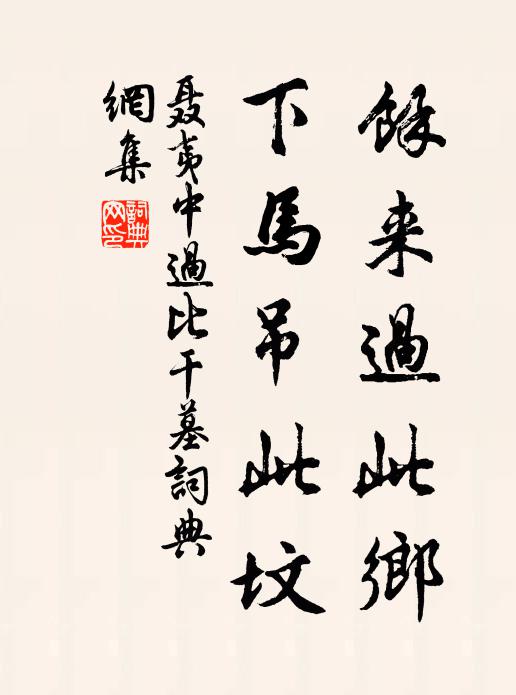 餘来過此鄉
下馬吊此坟
聂夷中過比干墓詞典
網集
詞典網印